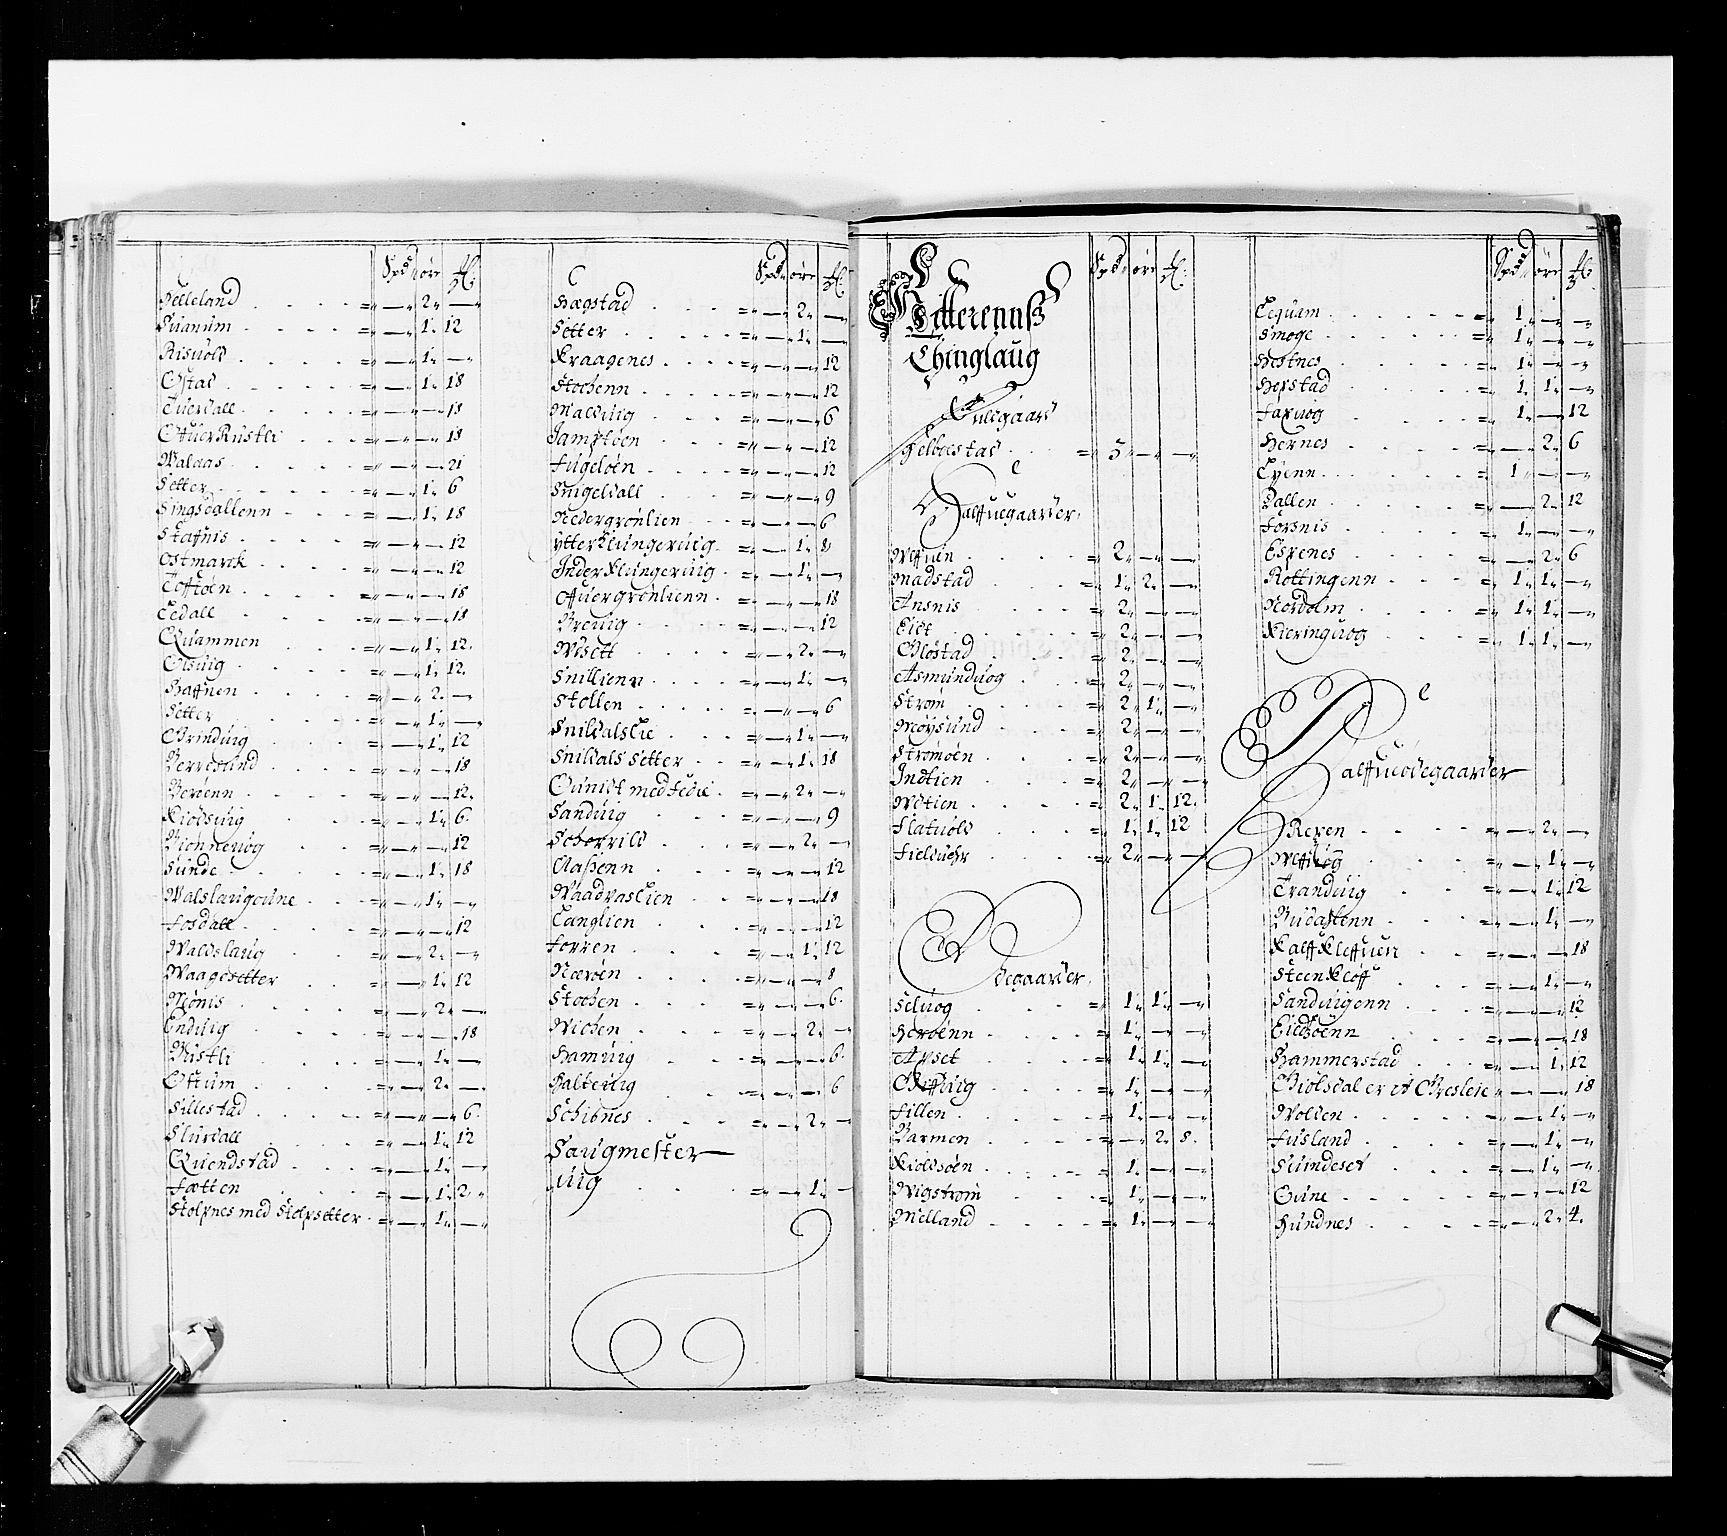 Spd øre Ʉ
Helleland - - 2 -
Suanum - - 1 12
Risuold - - 1 -
Ystad - - 1 18
Tuerdall - - - 18
OfuerRustli - - - 18
Walaas - - - 21
Setter - - 1 6
Singsdallenn - - 1 18
Stafnis - - - 12
Ostmarck - - - 12
Tofftøen - - - 18
Ledall - - - 18
Quammen - - 1 12
Olsuig - - 1 12
Haffnen - - 2 -
Setter - - 1 -
Grinduig - - 1 12
Berresund - - - 18
Berienn - - - 12
Kiodsuig - - 1 6
Bionneuog - - - 12
Sunde - - 1 18
Walslaugeune - - 1 -
Fosdall - - - 12
Waldslaug - - 2 -
Waagesetter - - 1 12
Miønis - - 2 -
Enduig - - - 18
Mistli - - 1 -
Ottum - - 2 -
Sillestad - - - 6
Slurdall - - 1 12
Quendstad - - 1 -
Fætten - - 1 2
Stolpnes med Stolpsetter - - 1 -
Spd øre Ʉ
Hægstad - - 2 -
Setter - - 1 -
Kraagenes - - - 12
Stochenn - - - 12
Malduig - - - 6
Jamptøen - - - 12
Fugeløen - - - 12
Snigeldall - - - 9
Nedergrønlien - - - 6
Ytterklungeruig - - 1 8
Inderklungeruig - - 1 -
Offuergrønlienn - - - 18
Breuig - - - 12
Wisett - - 2 -
Snillienn - - 1 -
Stollen - - - 6
Snildalslie - - 1 -
Snildals Setter - - 1 18
Qunidt med Fedie - - 2 -
Sanduig - - - 9
Schorrild - - 2 -
Aassenn - - - 12
Waadvaslien - - - 18
Langlien - - - 12
Forren - - 1 12
Nærøen - - - 8
Stochen - - - 6
Wichen - - 2 -
Hamuig - - - 6
Halteuig - - - 6
Schibnes - - 2 -
Saugmester
uig - - 1 -
Spd øre Ʉ
Hitterennß
Thinglaug
Fuldgaard
Helbostad - 3 - -
Halffuegaarder
Ulfuin - 2 - -
Madstad - 1 2 -
Ansnis - 2 - -
Eidt - 2 - -
Gløstad - 2 - -
Asmunduog - 2 - -
Strøm - 2 1 -
Møysund - 2 - -
Strømøen - 2 - -
Indtien - 2 - -
Udtien - 2 1 12
Flatuold - 1 1 12
Fielduær - 2 - -
Ødegaarder
Seluog - 1 1 -
Herøenn - 1 - -
Apset - 1 1 -
Gifftuig - 1 - -
Fillen - 1 - -
Barmen - - 2 8
Kioldsøen - 1 - -
Wigstrøm - 1 - -
Melland - 1 - -
Spd øre Ʉ
Lequam - 1 - -
Smoge - 1 - -
Hestnes - 1 - -
Hopstad - 1 1 -
Faxuog - 1 - 12
Hernes - - 2 6
Tyenn - 1 - -
Dallen - - 2 12
Forsnis - 1 - -
Espenes - - 2 6
Røttingenn - 1 1 -
Nordbim - 1 1 -
Kieringuog - 1 1 -
Halffueødegaarder
Repen - - 2 -
Ulffuog - - 1 -
Tranduig - - 1 12
Budastenn - - 1 -
Kalffkleffuen - - - 18
Steenkløff - - 1 -
Sanduigenn - - - 12
Eidsøenn - - - 18
Hammerstad - - 1 12
Giolsdal er it Gresleie - - - 18
Wolden - - 1 -
Fusland - - 1 -
Sundeset - - 1 -
Gune - - - 12
Hundnes - - 2 4